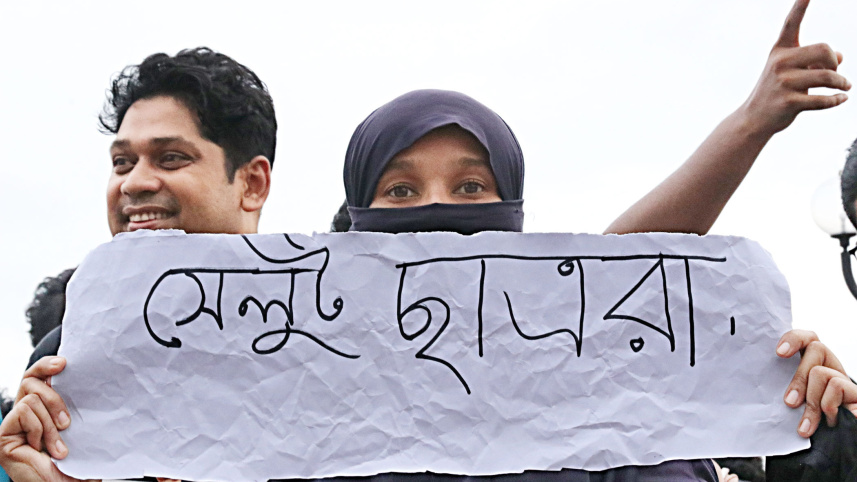 সেলুট ছাত্ররা .